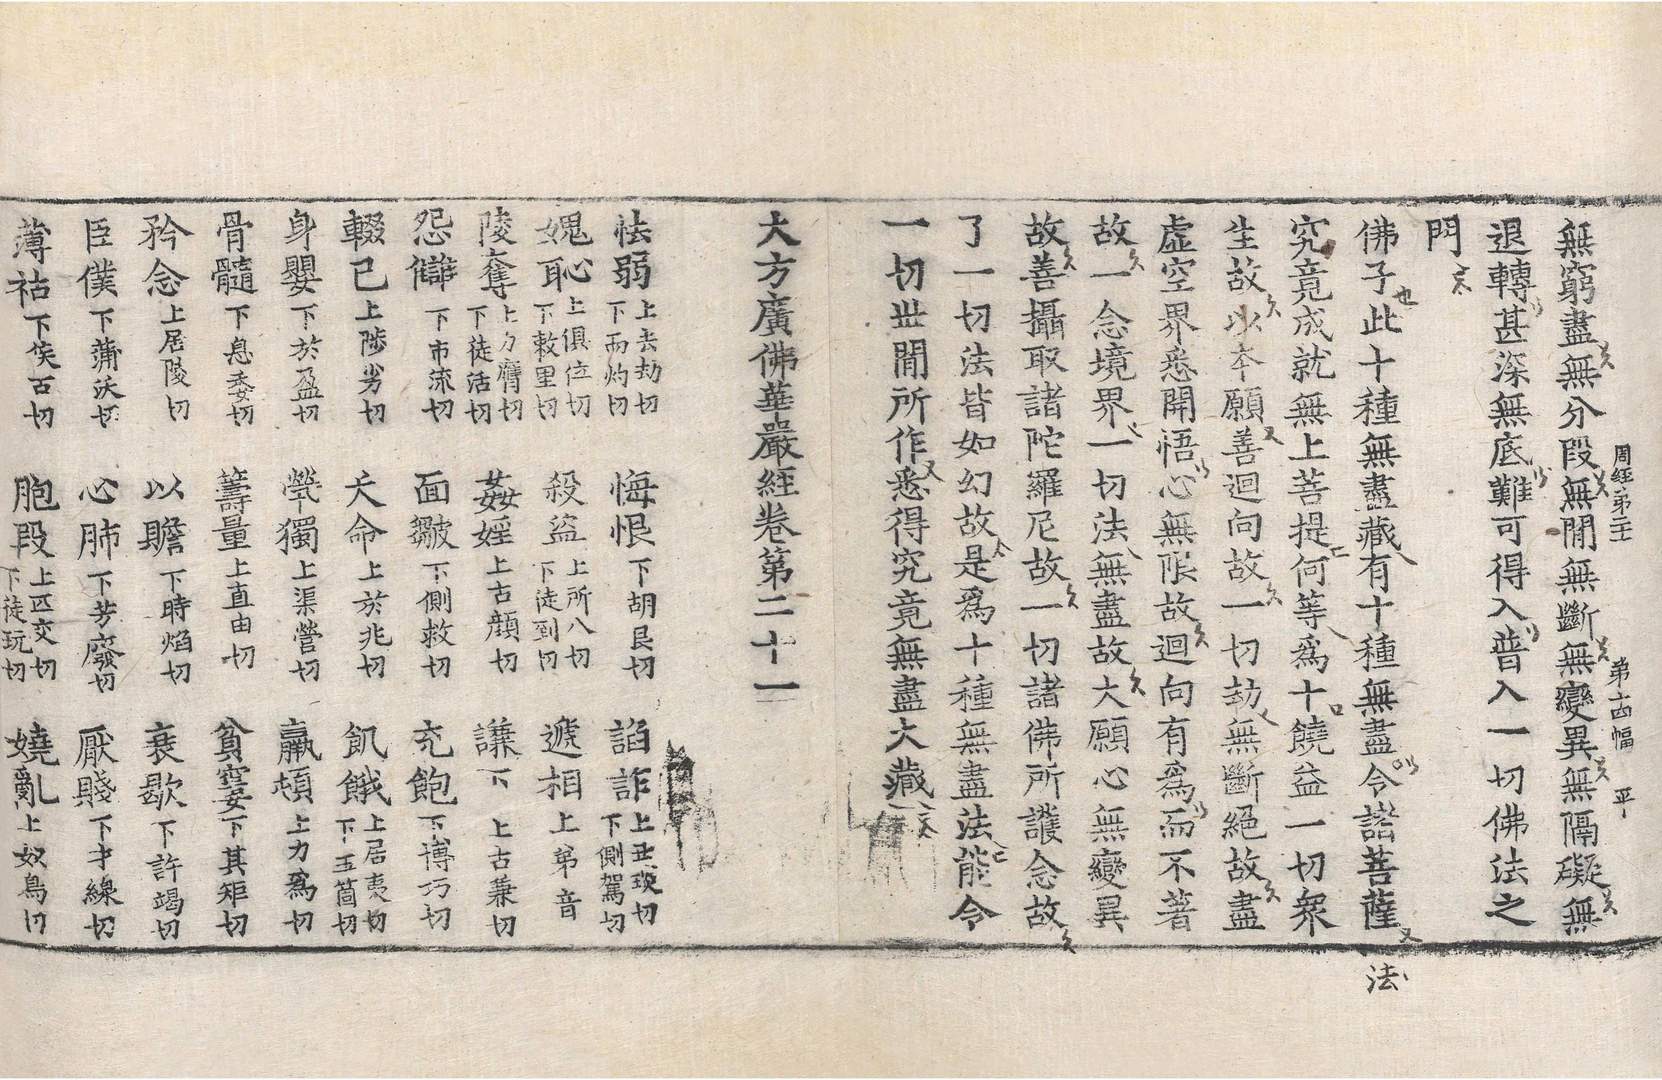 無窮盡無分段無閒無斷無變異無隔礙無
周經第二十一 第十四幅 平
退轉甚深無底難可得入普入一切佛法之
門
佛子此十種無盡藏有十種無盡令諸菩薩
法
究竟成就無上菩提何等爲十饒益一切衆
生故以本願善迴向故一切劫無斷絕故盡
虛空界悉開悟心無限故迴向有爲而不著
故一念境界一切法無盡故大願心無變異
故善攝取諸陀羅尼故一切諸佛所護念故
了一切法皆如幻故是爲十種無盡法能令
一切世閒所作悉得究竟無盡大藏
大方廣佛華嚴經卷第二十一
怯弱上去劫切下而灼切 悔恨下胡艮切 諂詐上丑琰切下側駕切
媿恥上俱位切下敕里切 殺盜上所八切下徒到切 遞相上弟音
陵奪上力膺切下徒活切 姦婬上古顔切 謙下上古兼切
怨讎下市流切 面皺下側救切 充飽下博巧切
輟已上陟劣切 夭命上於兆切 飢餓上居夷切下五箇切
身嬰下於盈切 煢獨上渠營切 羸頓上力爲切
骨髓下息委切 籌量上直由切 貧窶下其矩切
矜念上居陵切 以贍下時焰切 衰歇下許竭切
臣僕下蒲沃切 心肺下芳廢切 厭賤下才線切
薄祜下侯古切 胞段上匹交切下徒玩切 嬈亂上奴鳥切